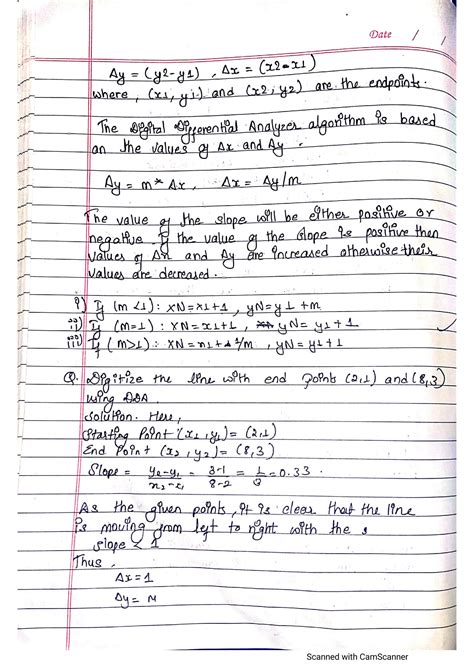 Date / /
Δy = (y2-y1) , Δx = (x2-x1)
where, (x1, y1) and (x2, y2) are the endpoints.
The Digital Differential Analyzer algorithm is based
on the values of Δx and Δy .
Δy = m* Δx, Δx = Δy/m
The value of the slope will be either positive or
negative. If the value of the slope is positive then
values of Δx and Δy are increased otherwise their
values are decreased.
i) If (m<1): XN=x1+1 , yN=y1 +m
ii) If (m=1) : XN = x1+1 , yN= y1 + 1
iii) If (m>1) : XN = x1 + 1/m , yN = y1 + 1
Q. Digitize the line with end points (2,1) and (8,3)
using DDA.
Solution. Here,
Starting Point (x1 , y1) = (2,1)
End Point (x2 , y2) = (8,3)
Slope = y2-y1 / x2-x1 = 3-1 / 8-2 = 1/3 = 0.33
As the given points, it is clear that the line
is moving from left to right with the s
slope < 1
Thus ,
Δx = 1
Δy = M
Scanned with CamScanner